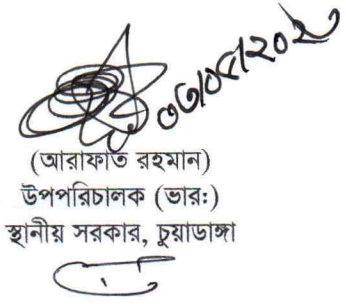 (আরাফাত রহমান)
উপপরিচালক (ভার:)
স্থানীয় সরকার, চুয়াডাঙ্গা